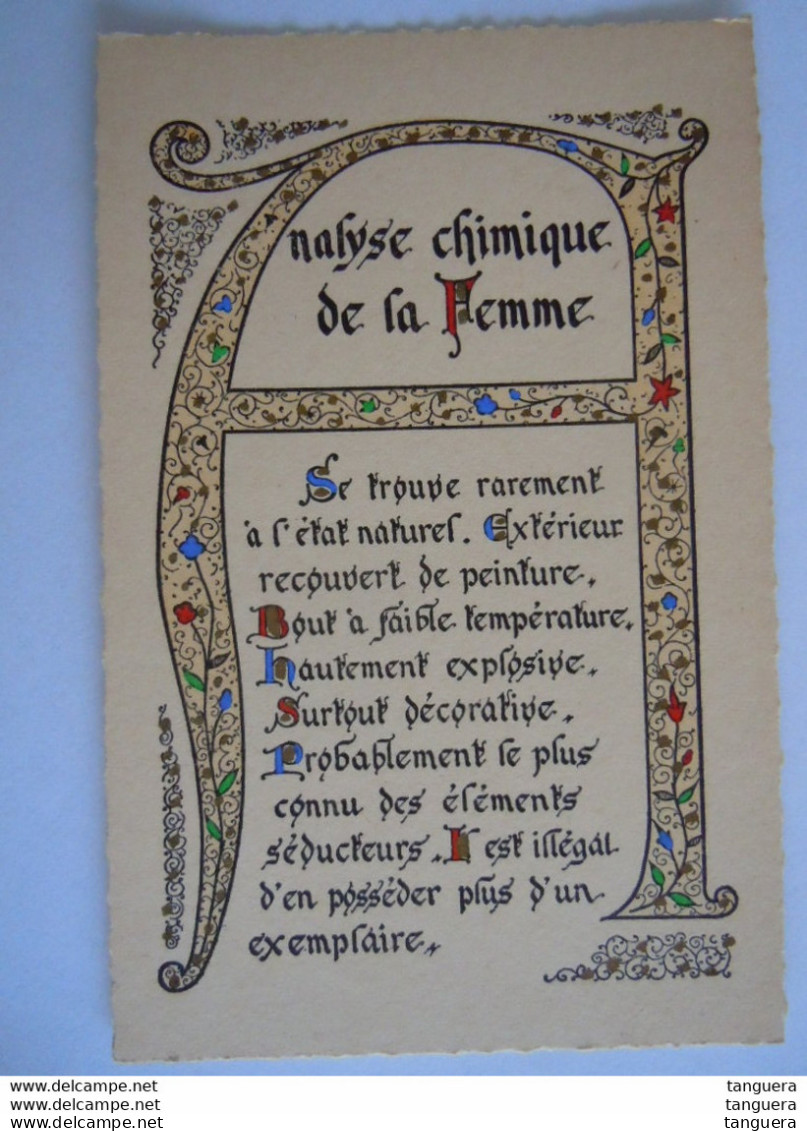 Analyse chimique
de la Femme
Se trouve rarement
à l'état naturel. Extérieur
recouvert de peinture.
Bout à faible température.
Hautement explosive.
Surtout décorative.
Probablement le plus
connu des éléments
séducteurs. Il est illégal
d'en posséder plus d'un
exemplaire.
www.delcampe.net
www.delcampe.net
www.delcampe.net
tanguera
tanguera
tanguera